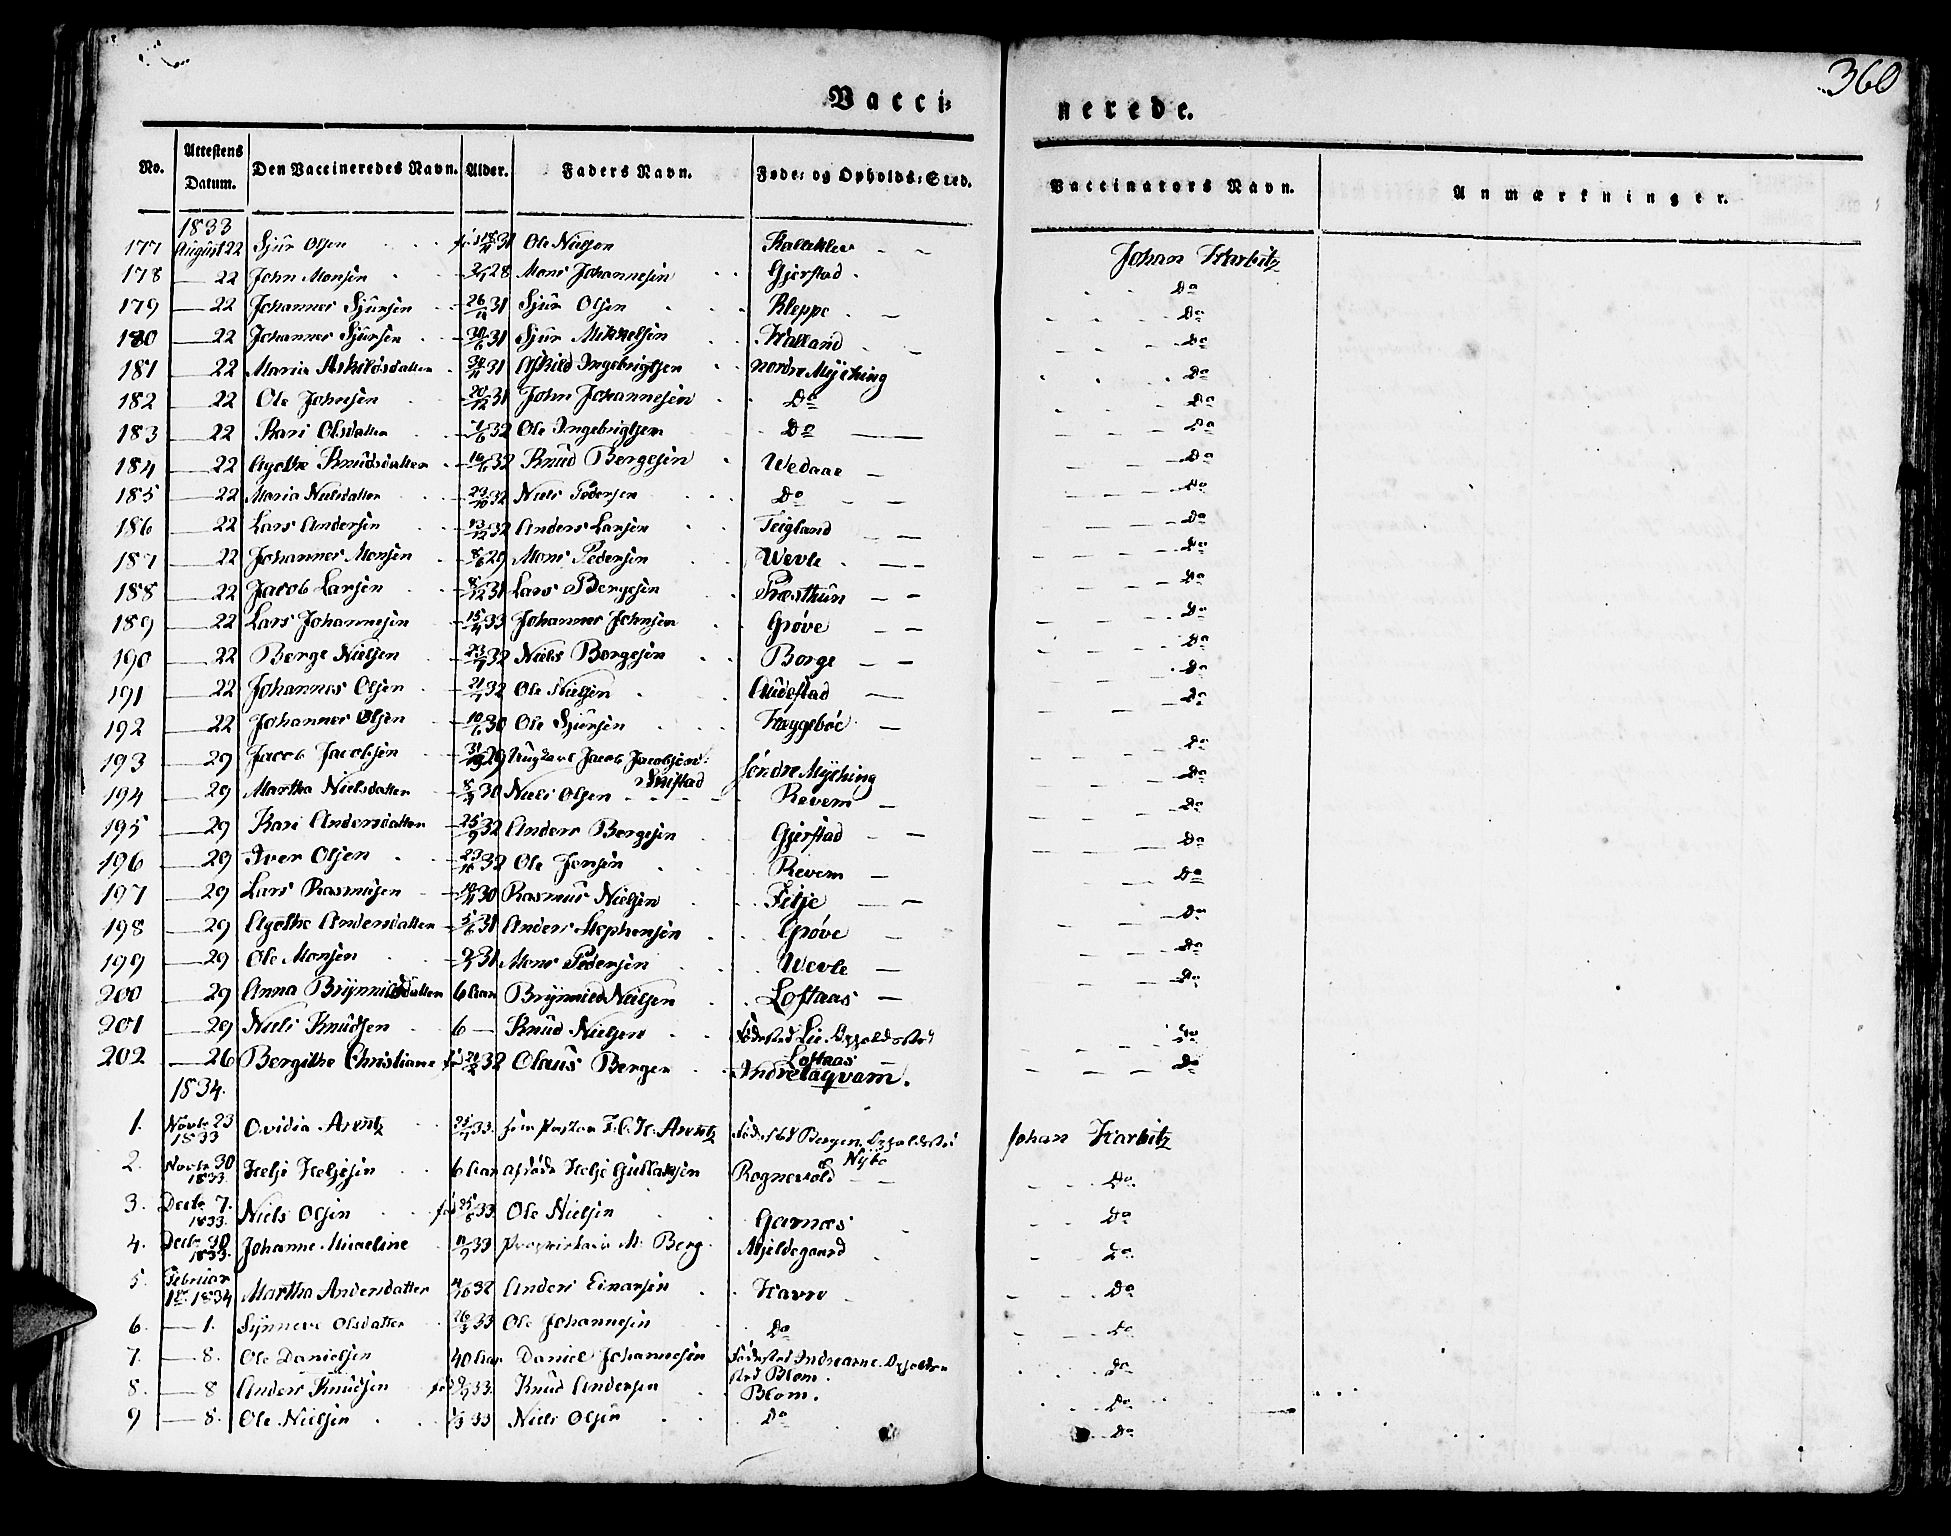 360
Vacci= nerede.
No. Attestens Datum. Den Vaccineredes Navn. Alder. Faders Navn. Føde= og Opholds=Sted. Vaccinators Navn. Anmærkninger.
1833
177 August 22 Sjur Olsen 31 Ole Nielsen Johan Harbitz
178 — 22 John Monsen 28 Mons Johannesen Gjerstad Do
179 — 22 Johannes Sjursen 26/12 31 Sjur Olsen Kleppe Do
180 — 22 Johannes Sjursen 31 Sjur Mikkelsen Halland Do
181 — 22 Maria Askildsdatter 31 Askild Ingebrigtsen nordre Myching Do
182 — 22 Ole Johnsen 20/12 31 John Johannesen Do Do
183 — 22 Kari Olsdatter 32 Ole Ingebrigtsen Do — Do
184 — 22 Agathe Knudsdatter 32 Knud Bergesen Wedaae — Do
185 — 22 Maria Nielsdatter 23/10 32 Niels Pedersen Do Do
186 — 22 Lars Andersen 13/12 32 Anders Larsen Teigland Do
187 — 22 Johannes Monsen 8/6 29 Mons Pedersen Wevle Do
188 — 22 Jacob Larsen 8/12 31 Lars Bergesen Præsthun Do
189 — 22 Lars Johannesen 15/4 33 Johannes Johnsen Grøve Do
190 — 22 Berge Nielsen 23/7 32 Niels Bergesen Borge Do
191 — 22 Johannes Olsen 21/7 32 Ole Nielsen Audestad Do
192 — 22 Johannes Olsen 30 Ole Sjursen Haugsbøe Do
193 — 29 Jacob Jacobsen 29 Jacob Jacobsen søndre Myching Do
194 — 29 Martha Nielsdatter 30 Niels Olsen Revem — Do
195 — 29 Kari Andersdatter 25/9 32 Anders Bergesen Gjerstad Do
196 — 29 Iver Olsen 32 Ole Jonsen Revem — Do
197 — 29 Lars Rasmusen 30 Rasmus Nielsen Fitje Do
198 — 29 Agathe Andersdatter 31 Anders Stephensen Grøve Do
199 — 29 Ole Monsen 31 Mons Pedersen Wevle — Do
200 — 29 Anna Brynnildsdatter 6 Aar Brynnild Nielsen Loftaas — Do
201 — 29 Niels Knudsen 6 — Knud Nielsen Fødested Lie. Opholdssted Loftaas Do
202 — 26 Bergithe Christiane 32 Olaus Berger Indre Laqvam. Do
1834.
1. Novbr 23 1833 Ovidia Arentz 33. Arentz Fødested Bergen. Opholdssted Nybø Johan Harbitz
2. Novbr 30 1833. Helje Heljesen 6 Aar afdøde Helje Gullaksen Rognevold Do
3. Decbr 7. 1833. Niels Olsen 33 Ole Nielsen Garnæs Do
4. Decbr 30 1833. Johanne Micaeline 33 Proprietair M. Berg Mjeldegaard Do
5. Februar 1ste 1834 Martha Andersdatter 32 Anders Einarsen Havre Do
6. — 1. Synneve Olsdatter 33 Ole Johannesen Do Do
7. — 8. Ole Danielsen 40 Aar Daniel Johannesen Fødested Indre Arne. Opholdssted Blom. Do
8. — 8 Anders Knudsen 33. Knud Andersen Blom. Do
9 — 8. Ole Nielsen 33 Niels Olsen Do Do